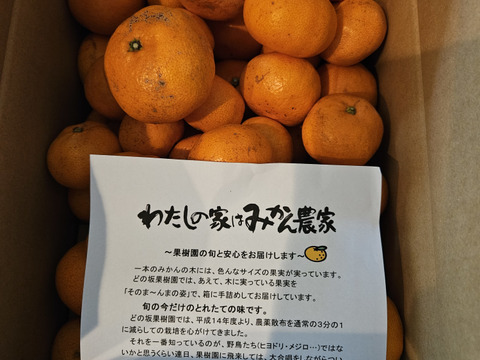 わたしの家はみかん農家
～果樹園の旬と安心をお届けします～
一本のみかんの木には、色んなサイズの果実が実っています。
どの坂果樹園では、あえて、木に実っている果実を
「そのま～んまの姿」で、箱に手詰めしてお届けしています。
旬の今だけのとれたての味です。
どの坂果樹園では、平成14年度より、農薬散布を通常の3分の1
に減らしての栽培を心がけてきました。
それを一番知っているのが、野鳥たち(ヒヨドリ・メジロ…)では
ないかと思うくらい連日、果樹園に飛来しては、大合唱をしながらつい